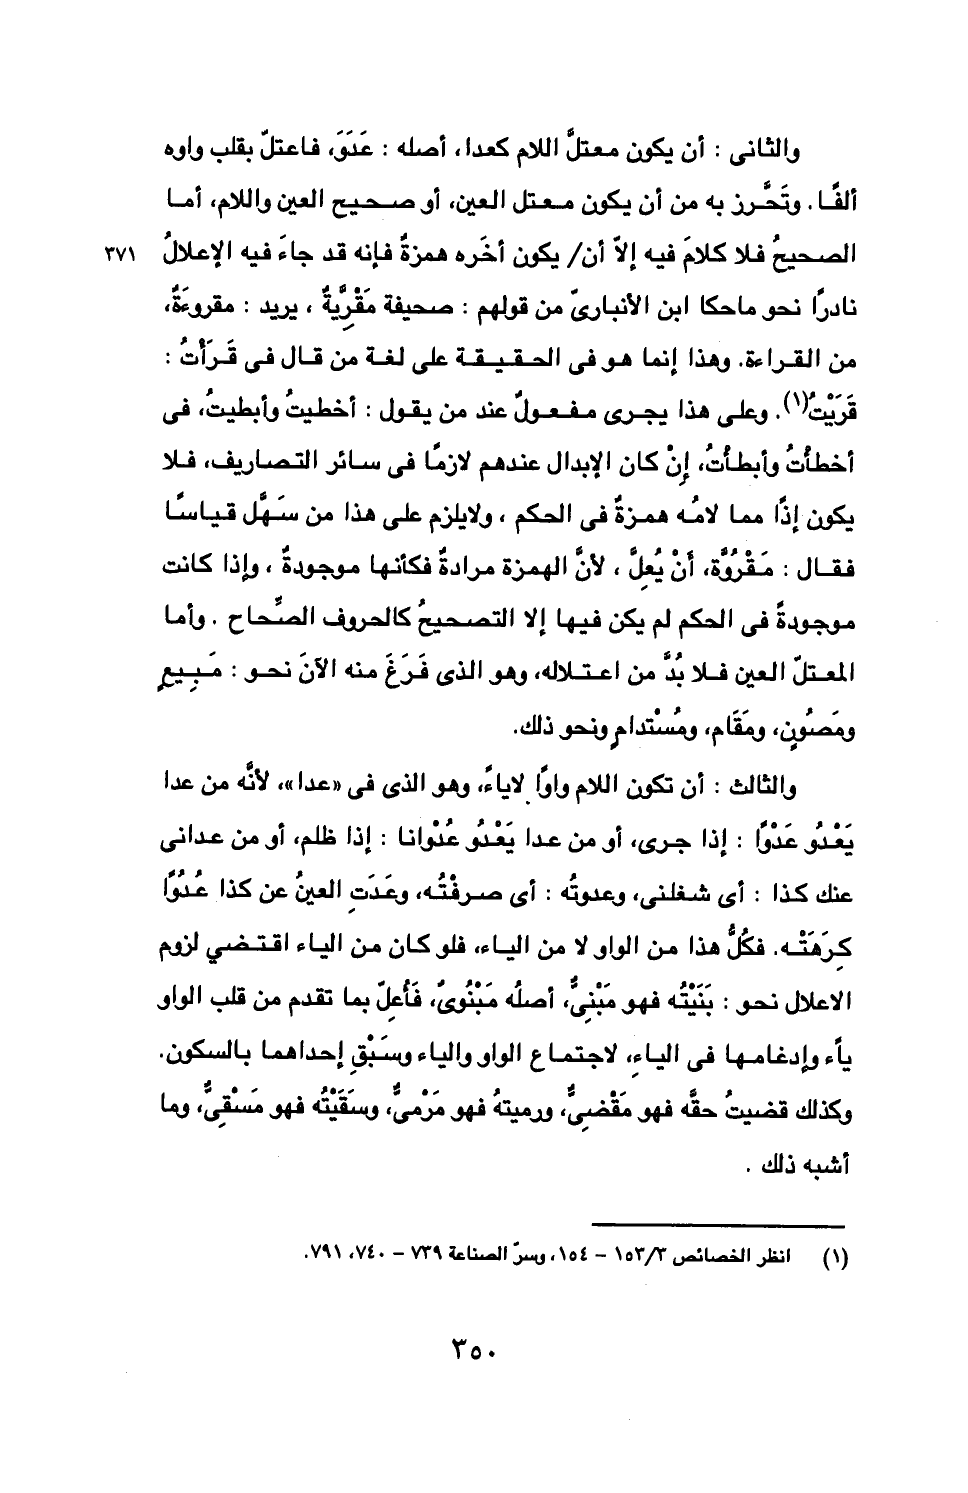 والثانى : أن يكون معتلَّ اللام كعدا، أصله : عَدَوَ، فاعتلّ بقلب واوه
ألفًا. وتَحَّرز به من أن يكون معتل العين، أو صحيح العين واللام، أما
الصحيحُ فلا كلامَ فيه إلاّ أن/ يكون أخَره همزةٌ فإنه قد جاءَ فيه الإعلالُ ٣٧١
نادرًا نحو ماحكا ابن الأنبارىّ من قولهم : صحيفة مَقْرِيَّةٌ ، يريد : مقروءَةٌ،
من القراءة. وهذا إنما هو فى الحقيقة على لغة من قال فى قَرَأْتُ :
قَرَيْتُ(١). وعلى هذا يجرى مفعولٌ عند من يقول : أخطيتُ وأبطيتُ، فى
أخطأتُ وأبطأتُ، إنْ كان الإبدال عندهم لازمًا فى سائر التصاريف، فلا
يكون إذًا مما لامُه همزةٌ فى الحكم ، ولايلزم على هذا من سَهَّل قياسًا
فقال : مَقْرُوَّة، أنْ يُعِلَّ ، لأنَّ الهمزة مرادةٌ فكأنها موجودةٌ ، وإذا كانت
موجودةً فى الحكم لم يكن فيها إلا التصحيحُ كالحروف الصِّحاح . وأما
المعتلّ العين فلا بُدَّ من اعتلاله، وهو الذى فَرَغَ منه الآنَ نحو : مَبِيعٍ
ومَصُونٍ، ومَقَام، ومُسْتدامٍ ونحو ذلك.
والثالث : أن تكون اللام واوًا لاياءً، وهو الذى فى «عدا»، لأنَّه من عدا
يَعْدُو عَدْوًا : إذا جرى، أو من عدا يَعْدُو عُدْوانا : إذا ظلم، أو من عدانى
عنك كذا : أى شغلنى، وعدوتُه : أى صرفْتُه، وعَدَتِ العينُ عن كذا عُدُوّا
كرِهَتْه. فكُلُّ هذا من الواو لا من الياء، فلو كان من الياء اقتضي لزوم
الاعلال نحو : بَنَيْتُه فهو مَبْنِىٌّ، أصلُه مَبْنُوىٌ، فَأُعِلّ بما تقدم من قلب الواو
يأء وإدغامها فى الياءِ، لاجتماع الواو والياء وسَبْقِ إحداهما بالسكون.
وكذلك قضيتُ حقَّه فهو مَقْضِىٌّ، ورميتهُ فهو مَرْمىٌّ، وسقَيْتُه فهو مَسْقِىٌّ، وما
أشبه ذلك .
(١) انظر الخصائص ١٥٣/٣ – ١٥٤، وسرّ الصناعة ٧٣٩ – ٧٤٠، ٧٩١.
٣٥٠